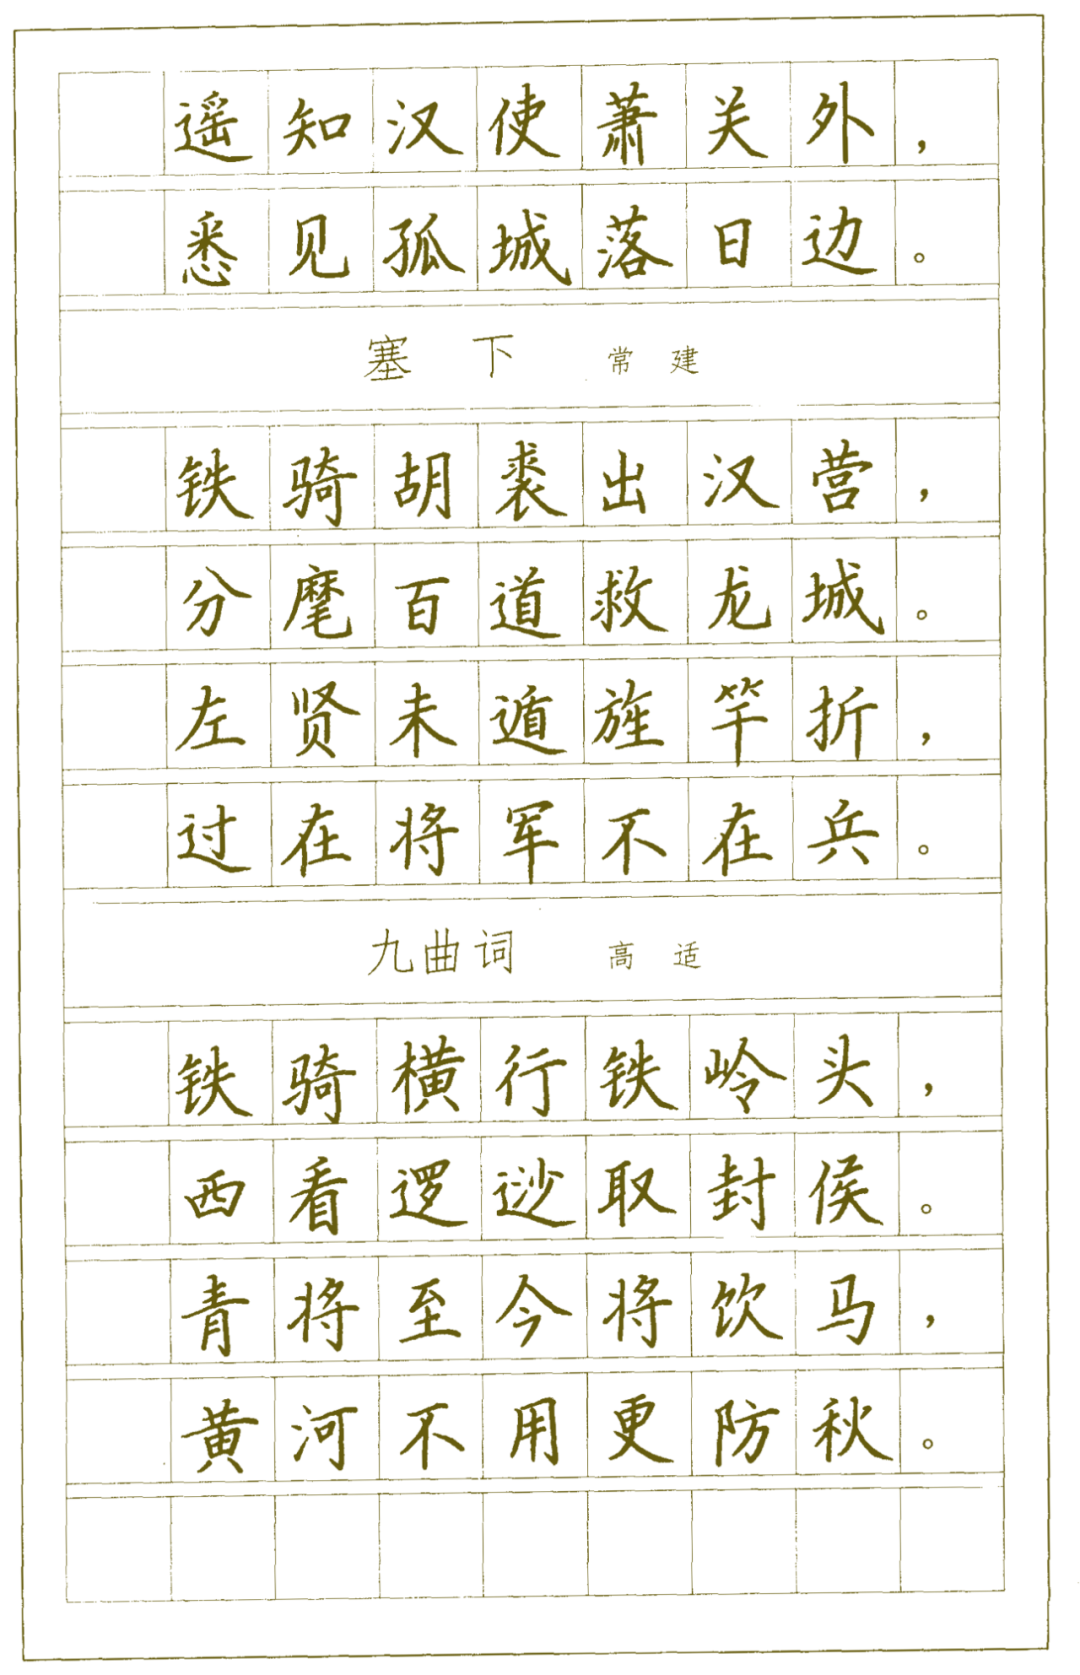 遥知汉使萧关外，
悉见孤城落日边。
塞下 常建
铁骑胡裘出汉营，
分麾百道救龙城。
左贤未遁旌竿折，
过在将军不在兵。
九曲词 高适
铁骑横行铁岭头，
西看逻逤取封侯。
青将至今将饮马，
黄河不用更防秋。